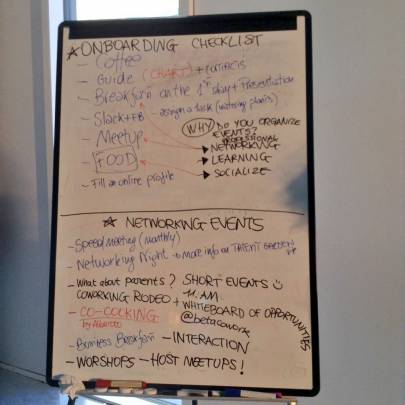 ★ ONBOARDING CHECKLIST
- Coffee
- Guide (CHART) + contacts
- Breakfast on the 1st day + Presentation
- Slack + FB - assign a task (watering plants)
WHY DO YOU ORGANIZE EVENTS?
- Meetup
PROFESSIONAL
NETWORKING
- FOOD
LEARNING
- Fill an online profile
SOCIALIZE
★ NETWORKING EVENTS
- Speed Meeting (monthly)
- Networking Night → more info on TALENT
- What about parents? SHORT EVENTS
COWORKING RODEO + 11 AM
WHITEBOARD OF OPPORTUNITIES
- CO-COOKING
by Alberto
@betacowork
- Business Breakfast - INTERACTION
- WORSHOPS - HOST MEETUPS!